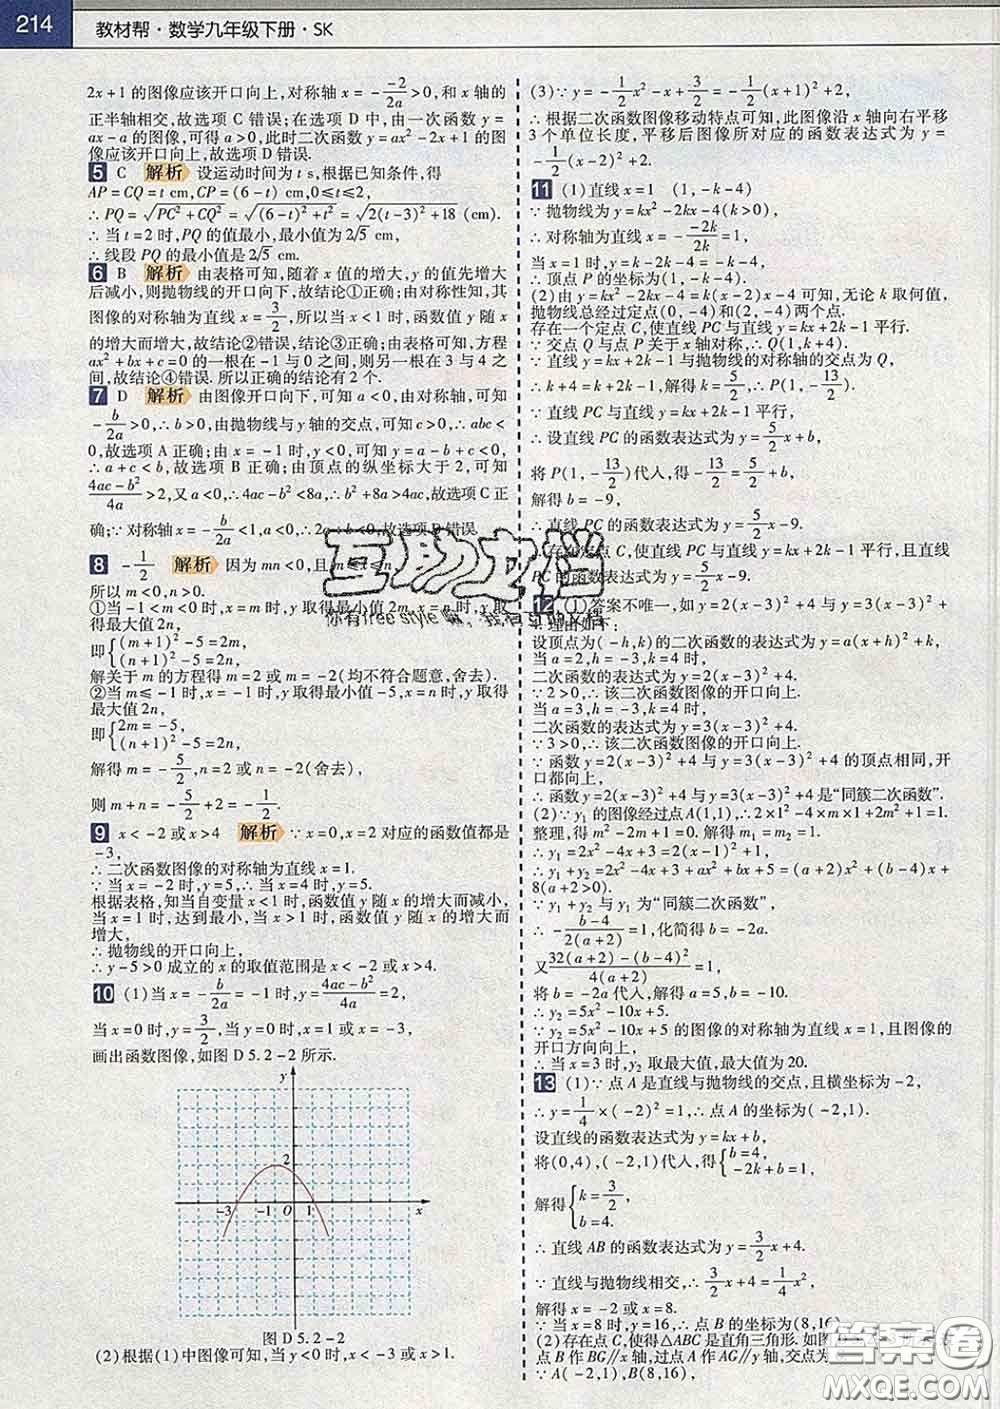 214
教材帮·数学九年级下册·SK
2x+1的图像应该开口向上,对称轴x=-\frac{-2}{2a}>0,和x轴的
正半轴相交,故选项C错误;在选项D中,由一次函数y=
ax-a的图像,可得a>0,此时二次函数y=ax²-2x+1的图
像应该开口向上,故选项D错误.
5 C 解析 设运动时间为t s,根据已知条件,得
AP=CQ=t cm,CP=(6-t) cm,0≤t≤2,
∴PQ=√(PC²+CQ²)=√((6-t)²+t²)=√(2(t-3)²+18) (cm).
∴当t=2时,PQ的值最小,最小值为2√5 cm,
∴线段PQ的最小值是2√5 cm.
6 B 解析 由表格可知,随着x值的增大,y的值先增大
后减小,则抛物线的开口向下,故结论①正确;由对称性知,其
图像的对称轴为直线x=\frac{3}{2},所以当x<1时,函数值y随x
的增大而增大,故结论②错误,结论③正确;由表格可知,方程
ax²+bx+c=0的一根在-1与0之间,则另一根在3与4之
间,故结论④错误.所以正确的结论有2个.
7 D 解析 由图像开口向下,可知a<0,由对称轴,可知
-\frac{b}{2a}>0,∴b>0,由抛物线与y轴的交点,可知c>0,∴abc<
0,故选项A正确;由图可知,当x=-1时,y=a-b+c<0,
∴a+c<b,故选项B正确;由顶点的纵坐标大于2,可知
\frac{4ac-b²}{4a}>2,又a<0,∴4ac-b²<8a,∴b²+8a>4ac,故选项C正
确;∵对称轴x=-\frac{b}{2a}<1,a<0,∴2a+b<0,故选项D错误.
8 -\frac{1}{2} 解析 因为mn<0,且m≤x≤n,
所以m<0,n>0.
①当-1<m<0时,y取得最小值2m,x=n时,y取
得最大值2n,
即{(m+1)²-5=2m,
(n+1)²-5=2n,
解关于m的方程得m=2或m=-2(均不符合题意,舍去).
②当m≤-1时,y取得最小值-5,x=n时,y取得
最大值2n,
即{2m=-5,
(n+1)²-5=2n,
解得m=-\frac{5}{2},n=2或n=-2(舍去),
则m+n=-\frac{5}{2}+2=-\frac{1}{2}.
9 x<-2或x>4 解析 ∵x=0,x=2对应的函数值都是
-3,
∴二次函数图像的对称轴为直线x=1.
∵当x=-2时,y=5,∴当x=4时,y=5.
根据表格,知当自变量x<1时,函数值y随x的增大而减小,
当x=1时,达到最小,当x>1时,函数值y随x的增大而
增大,
∴抛物线的开口向上,
∴y-5>0成立的x的取值范围是x<-2或x>4.
10 (1)当x=-\frac{b}{2a}=-1时,y=\frac{4ac-b²}{4a}=2,
当x=0时,y=\frac{3}{2},当y=0时,x=1或x=-3,
画出函数图像,如图D5.2-2所示.
y
2
-3 -1 O 1 x
图D5.2-2
(2)根据(1)中图像可知,当y<0时,x<-3或x>1.
(3)∵y=-\frac{1}{2}x²-x+\frac{3}{2}=-\frac{1}{2}(x+1)²+2,
∴根据二次函数图像移动特点可知,此图像沿x轴向右平移
3个单位长度,平移后图像所对应的函数表达式为y=
-\frac{1}{2}(x-2)²+2.
11 (1)直线x=1 (1,-k-4)
∵抛物线为y=kx²-2kx-4(k>0),
∴对称轴为直线x=-\frac{-2k}{2k}=1,
当x=1时,y=k-2k-4=-k-4,
∴顶点P的坐标为(1,-k-4).
(2)由y=kx²-2kx-4=k(x-2)x-4可知,无论k取何值,
抛物线总经过定点(0,-4)和(2,-4)两个点.
存在一个定点C,使直线PC与直线y=kx+2k-1平行.
∵交点Q与点P关于x轴对称,∴Q(1,k+4).
∵直线y=kx+2k-1与抛物线的对称轴的交点为Q,
∴k+4=k+2k-1,解得k=\frac{5}{2},∴P(1,-\frac{13}{2}).
∵直线PC与直线y=kx+2k-1平行,
∴设直线PC的函数表达式为y=\frac{5}{2}x+b,
将P(1,-\frac{13}{2})代入,得-\frac{13}{2}=\frac{5}{2}+b,
解得b=-9,
∴直线PC的函数表达式为y=\frac{5}{2}x-9.
∴存在定点C,使直线PC与直线y=kx+2k-1平行,且直线
PC的函数表达式为y=\frac{5}{2}x-9.
12 (1)答案不唯一,如y=2(x-3)²+4与y=3(x-3)²+
4.理由如下:
设顶点为(-h,k)的二次函数的表达式为y=a(x+h)²+k,
当a=2,h=-3,k=4时,
二次函数的表达式为y=2(x-3)²+4.
∵2>0,∴该二次函数图像的开口向上.
当a=3,h=-3,k=4时,
二次函数的表达式为y=3(x-3)²+4.
∵3>0,∴该二次函数图像的开口向上.
∵函数y=2(x-3)²+4与y=3(x-3)²+4的顶点相同,开
口都向上,
∴函数y=2(x-3)²+4与y=3(x-3)²+4是“同簇二次函数”.
(2)∵y₁的图像经过点A(1,1),∴2×1²-4×m×1+2m²+1=1.
整理,得m²-2m+1=0.解得m₁=m₂=1.
∴y₁=2x²-4x+3=2(x-1)²+1,
∴y₁+y₂=2x²-4x+3+ax²+bx+5=(a+2)x²+(b-4)x+
8(a+2>0).
∵y₁+y₂与y₁为“同簇二次函数”,
∴-\frac{b-4}{2(a+2)}=1,化简得b=-2a.
又\frac{32(a+2)-(b-4)²}{4(a+2)}=1,
将b=-2a代入,解得a=5,b=-10.
∴y₂=5x²-10x+5.
∵y₂=5x²-10x+5的图像的对称轴为直线x=1,且图像的
开口方向向上,
∴当x=3时,y₂取最大值,最大值为20.
13 (1)∵点A是直线与抛物线的交点,且横坐标为-2,
∴y=\frac{1}{4}×(-2)²=1,∴点A的坐标为(-2,1).
设直线的函数表达式为y=kx+b,
将(0,4),(-2,1)代入,得{b=4,
-2k+b=1,
解得{k=\frac{3}{2},
b=4.
∴直线AB的函数表达式为y=\frac{3}{2}x+4.
∵直线与抛物线相交,∴\frac{3}{2}x+4=\frac{1}{4}x²,
解得x=-2或x=8.
∴当x=8时,y=16,∴点B的坐标为(8,16).
(2)存在点C,使得△ABC是直角三角形.如图
点B作BG∥x轴,过点A作AG∥y轴,交点为
∵A(-2,1),B(8,16),
互助文档
你有free style嘛,我有互助文档
答案圈
MXQE.COM